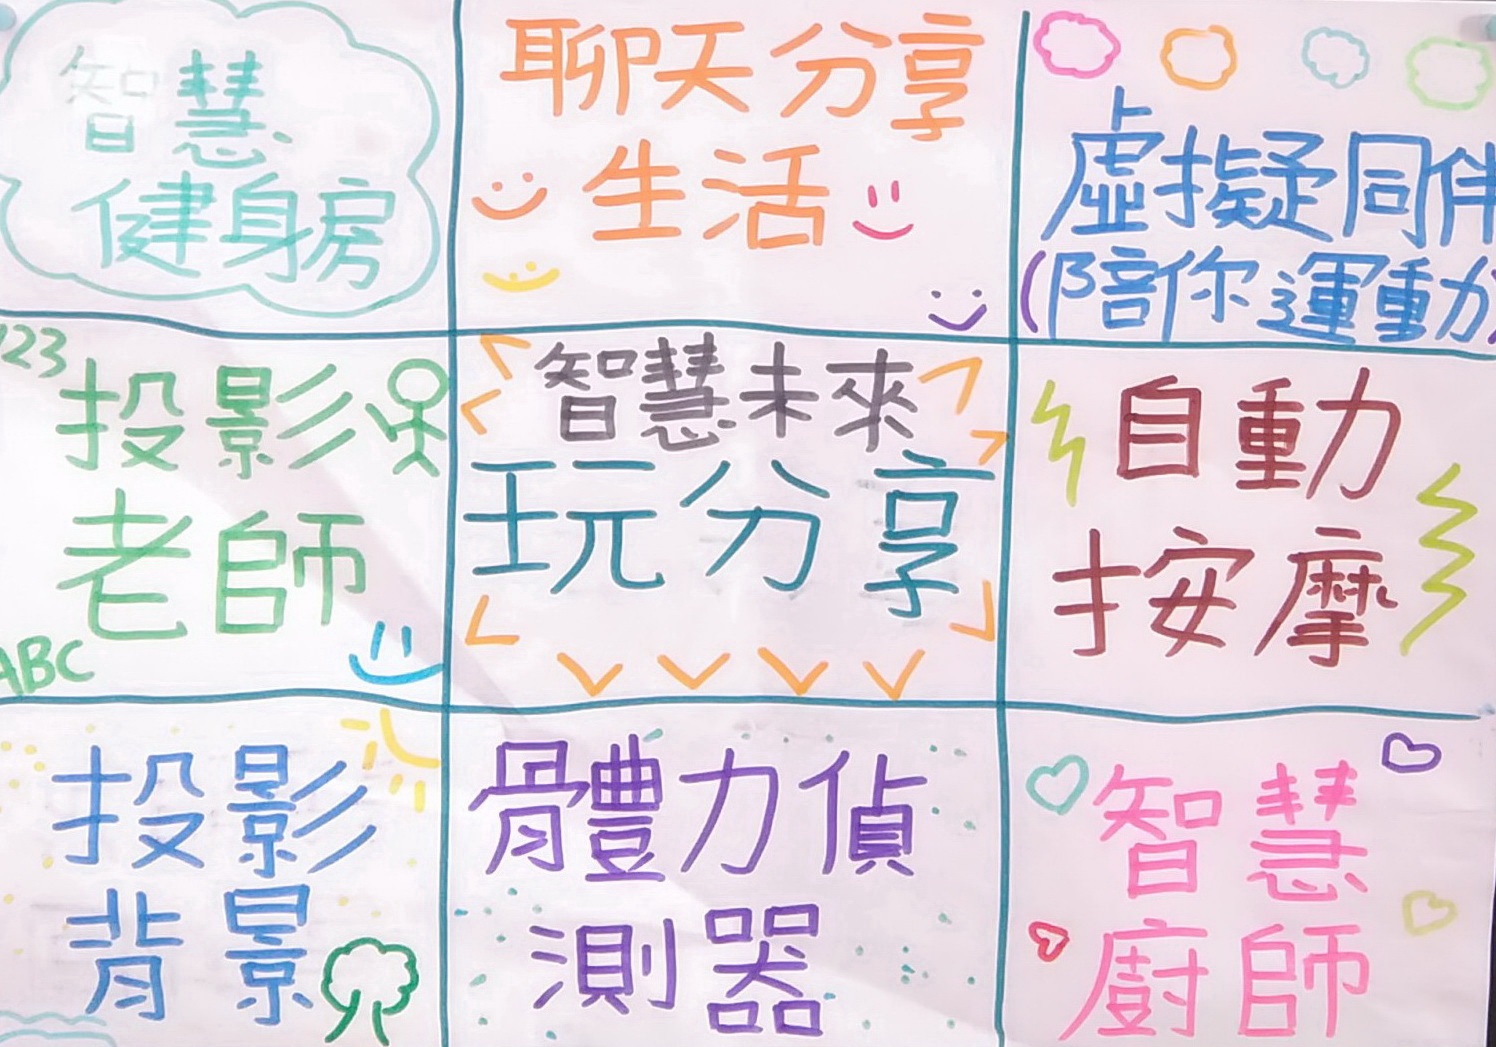 智慧
健身房
聊天分享
生活
虛擬同伴
(陪你運動)
123
投影
老師
ABC
智慧未來
玩分享
自動
按摩
投影
背景
體力偵
測器
智慧
廚師